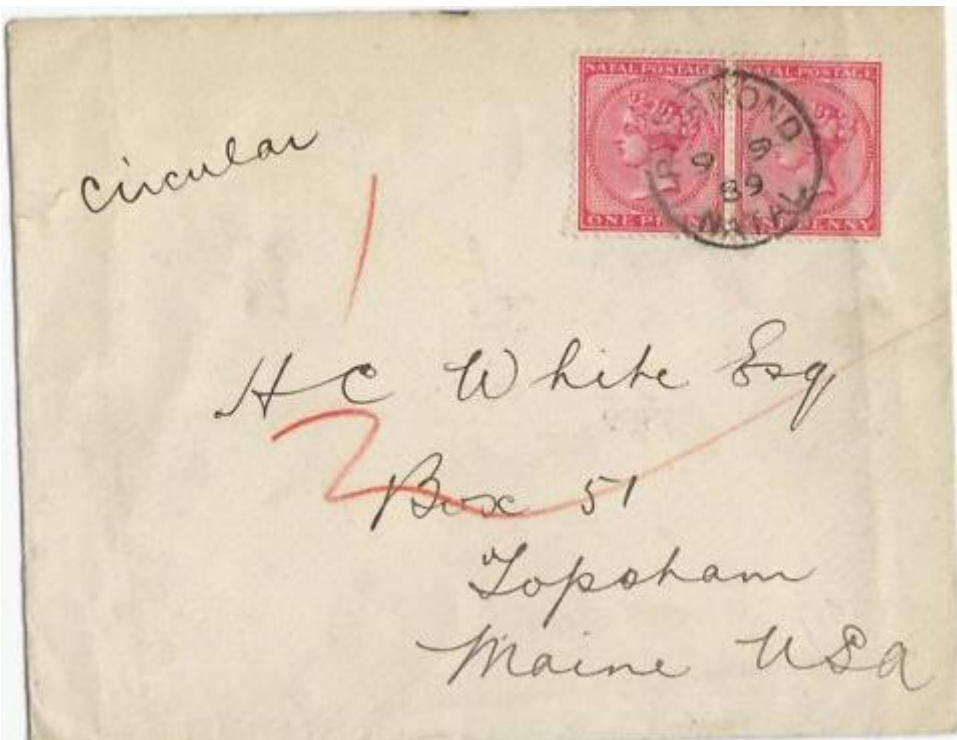 NATAL POSTAGE NATAL POSTAGE
RICHMOND
9 S
89
NATAL
ONE PENNY ONE PENNY
Circular
1
H C White Esq
2
Box 51
Topsham
Maine USA